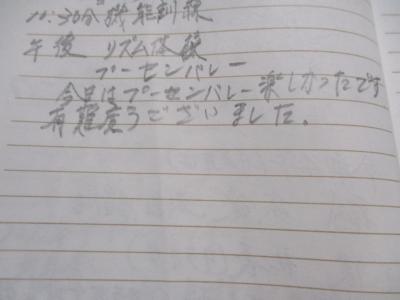 10:30分 機能訓練
午後 リズム体操
プーセンバレー
今日はプーセンバレー楽しかったです
有難度うございました。